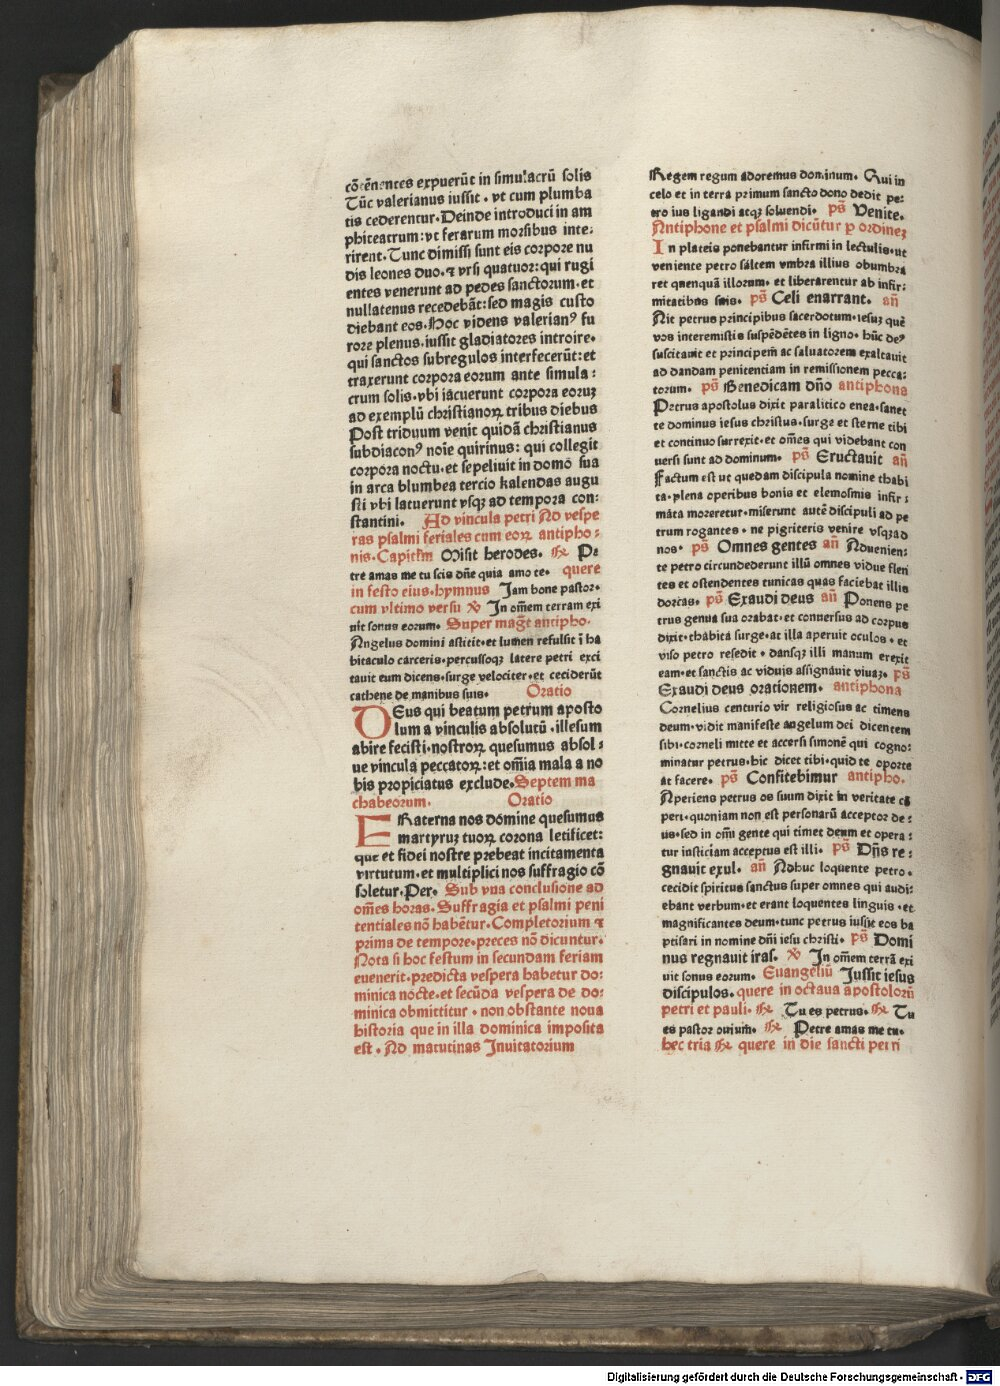 cōtēnentes expuerūt in simulacrū solis
Tūc valerianus iussit . vt cum plumba
tis cederentur . Deinde introduci in am
phiteatrum : vt ferarum morsibus inte-
rirent . Tunc dimissi sunt eis corpore nu
dis leones duo . ⁊ vrsi quatuor : qui rugi
entes venerunt ad pedes sanctorum . et
nullatenus recedebāt : sed magis custo
diebant eos . Hoc videns valerianꝰ fu
rore plenus . iussit gladiatores introire .
qui sanctos subregulos interfecerūt : et
traxerunt corpora eorum ante simula :
crum solis . vbi iacuerunt corpora eoruꝫ
ad exemplū christianoꝝ tribus diebus
Post triduum venit quidā christianus
subdiaconꝰ noīe quirinus : qui collegit
corpora noctu . et sepeliuit in domo sua
in arca blumbea tercio kalendas augu
sti vbi latuerunt vsqꝫ ad tempora con :
stantini . Ad vincula petri Ad vespe
ras psalmi feriales cum eoꝝ antipho :
nis . Capitłm Misit herodes . ℟ Pe
tre amas me tu scis dn̄e quia amo te . quere
in festo eius . hymnus Jam bone pastor .
cum vltimo versu ℣ In om̄em terram exi
uit sonus eorum . Super mag̅t antipho .
Angelus domini astitit . et lumen refulsit ī ha
bitaculo carceris . percussoqꝫ latere petri exci
tauit eum dicens . surge velociter . et ceciderūt
cathene de manibus suis . Oratio
DEus qui beatum petrum aposto
lum a vinculis absolutū . illesum
abire fecisti . nostroꝝ quesumus absol :
ue vincula peccatoꝝ : et om̄ia mala a no
bis propiciatus exclude . Septem ma
chabeorum . Oratio
FRaterna nos domine quesumus
martyruꝫ tuoꝝ corona letificet :
que et fidei nostre prebeat incitamenta
virtutum . et multiplici nos suffragio cō
soletur . Per . Sub vna conclusione ad
om̄es horas . Suffragia et psalmi peni
tentiales nō habētur . Completorium ⁊
prima de tempore . preces nō dicuntur .
Nota si hoc festum in secundam feriam
euenerit . predicta vespera habetur do :
minica nocte . et secūda vespera de do :
minica obmittitur . non obstante noua
historia que in illa dominica imposita
est . Ad matutinas Inuitatorium
Regem regum adoremus dominum . Qui in
celo et in terra primum sancto dono dedit pe :
tro ius ligandi atqꝫ soluendi . ps̄ Venite .
Antiphone et psalmi dicūtur ꝑ ordineꝫ
In plateis ponebantur infirmi in lectulis . ut
veniente petro saltem vmbra illius obumbra
ret quenquā illorum . et liberarentur ab infir :
mitatibus suis . ps̄ Celi enarrant . an̄
Ait petrus principibus sacerdotum . iesuꝫ quē
vos interemistis suspēdētes in ligno . hūc deꝰ
suscitauit et principem̄ ac saluatorem exaltauit
ad dandam penitentiam in remissionem pecca :
torum . ps̄ Benedicam dn̄o antiphona
Petrus apostolus dixit paralitico enea . sanet
te dominus iesus christus . surge et sterne tibi
et continuo surrexit . et om̄es qui videbant con
uersi sunt ad dominum . ps̄ Eructauit an̄
Factum est ut quedam discipula nomine thabi
ta . plena operibus bonis et elemosinis infir :
mata moreretur . miserunt autē discipuli ad pe
trum rogantes . ne pigriteris venire vsqꝫ ad
nos . ps̄ Omnes gentes an̄ Aduenien :
te petro circundederunt illū omnes vidue flen
tes et ostendentes tunicas quas faciebat illis
dorcas . ps̄ Exaudi deus an̄ Ponens pe
trus genua sua orabat . et conuersus ad corpus
dixit . thabita surge . at illa aperuit oculos . et
viso petro resedit . dansqꝫ illi manum erexit
eam . et sanctis ac viduis assignauit viuaꝫ . ps̄
Exaudi deus orationem . antiphona
Cornelius centurio vir religiosus ac timens
deum . vidit manifeste angelum dei dicentem
sibi . corneli mitte et accersi simonē qui cogno :
minatur petrus . hic dicet tibi . quid te oporte
at facere . ps̄ Confitebimur antipho .
Aperiens petrus os suum dixit in veritate cō
peri . quoniam non est personarū acceptor de :
us . sed in om̄i gente qui timet deum et opera :
tur insticiam acceptus est illi . ps̄ Dn̄s re :
gnauit exul . an̄ Adhuc loquente petro .
cecidit spiritus sanctus super omnes qui audi :
ebant verbum . et erant loquentes linguis . et
magnificantes deum . tunc petrus iussit eos ba
ptisari in nomine dn̄i iesu christi . ps̄ Domi
nus regnauit iras . ℣ In om̄em terrā exi
uit sonus eorum . Euangeliū Jussit iesus
discipulos . quere in octaua apostolorū
petri et pauli . ℟ Tu es petrus . ℟ Tu
es pastor ouium . ℟ Petre amas me tu .
hec tria ℟ quere in die sancti petri
Digitalisierung gefördert durch die Deutsche Forschungsgemeinschaft - DFG